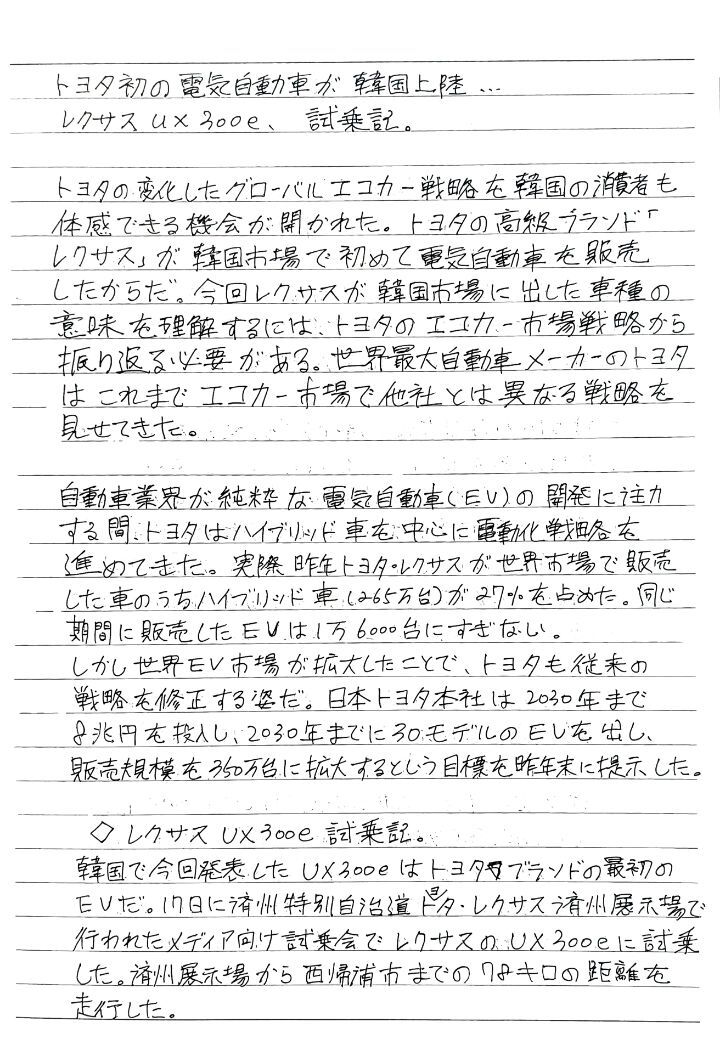 トヨタ初の電気自動車が韓国上陸…
レクサスUX300e、試乗記。
トヨタの変化したグローバルエコカー戦略を韓国の消費者も
体感できる機会が開かれた。トヨタの高級ブランド「
レクサス」が韓国市場で初めて電気自動車を販売
したからだ。今回レクサスが韓国市場に出した車種の
意味を理解するには、トヨタのエコカー市場戦略から
振り返る必要がある。世界最大自動車メーカーのトヨタ
はこれまでエコカー市場で他社とは異なる戦略を
見せてきた。
自動車業界が純粋な電気自動車(EV)の開発に注力
する間、トヨタはハイブリッド車を中心に電動化戦略を
進めてきた。実際昨年トヨタ・レクサスが世界市場で販売
した車のうちハイブリッド車(265万台)が27%を占めた。同じ
期間に販売したEVは1万6000台にすぎない。
しかし世界EV市場が拡大したことで、トヨタも従来の
戦略を修正する姿だ。日本トヨタ本社は2030年まで
8兆円を投入し、2030年までに30モデルのEVを出し、
販売規模を350万台に拡大するという目標を昨年末に提示した。
◇レクサスUX300e試乗記。
韓国で今回発表したUX300eはトヨタブランドの最初の
EVだ。17日に済州特別自治道トヨタ・レクサス済州展示場で
行われたメディア向け試乗会でレクサスのUX300eに試乗
した。済州展示場から西帰浦市までの78キロの距離を
走行した。